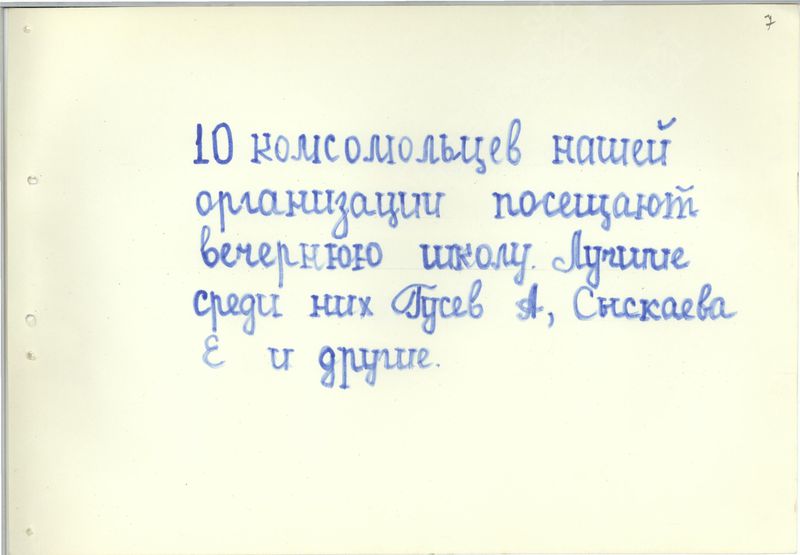 7
10 комсомольцев нашей
организации посещают
вечернюю школу. Лучшие
среди них Гусев А, Сыскаева
Е и другие.